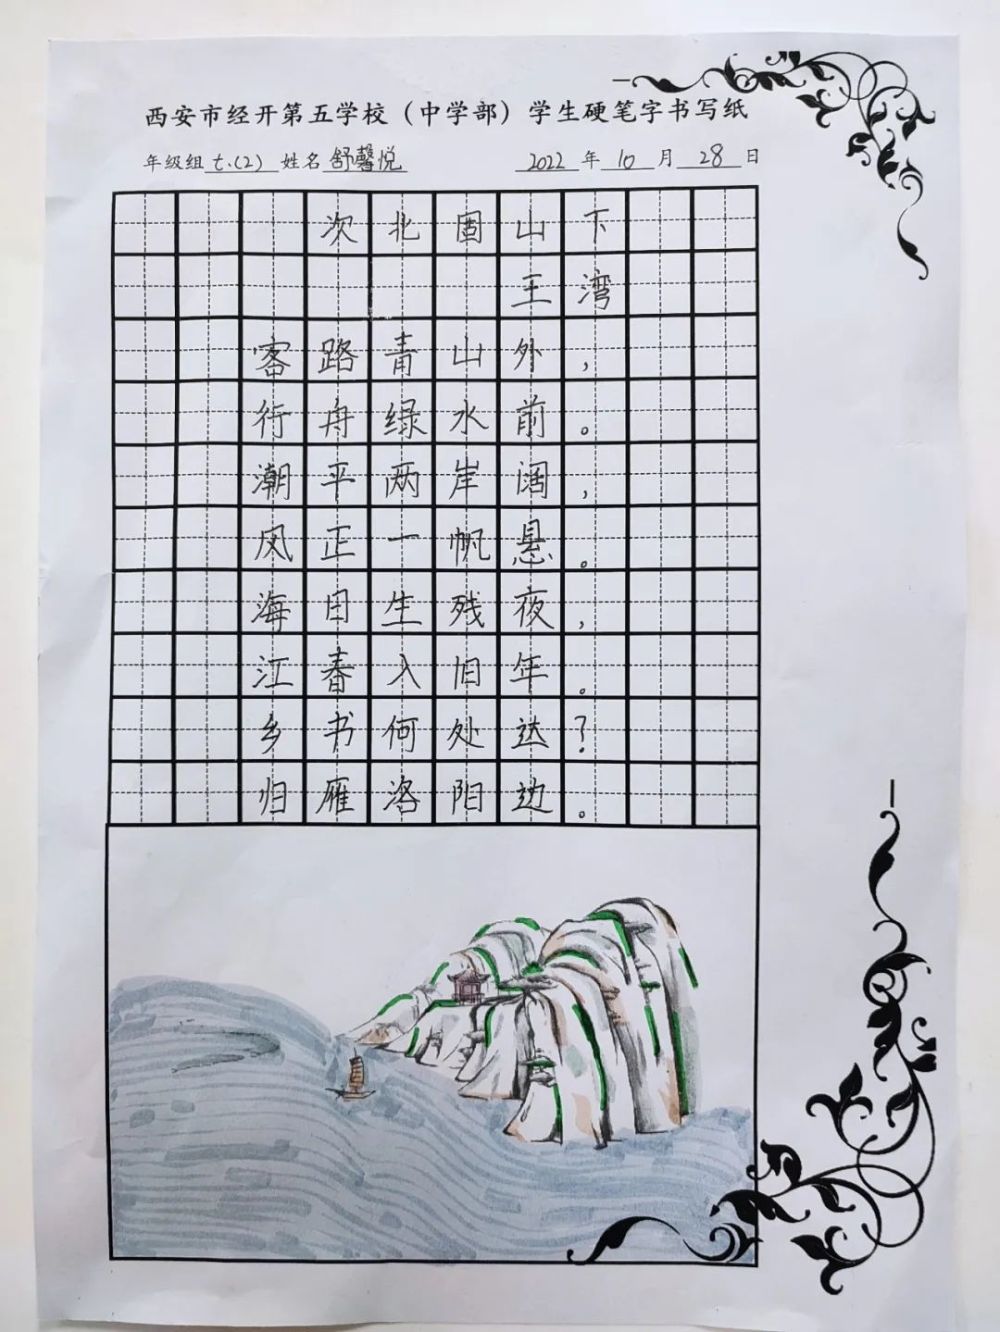 西安市经开第五学校（中学部）学生硬笔字书写纸
年级组 七.(2) 姓名 舒馨悦 2022 年 10 月 28 日
次北固山下
王湾
客路青山外，
行舟绿水前。
潮平两岸阔，
风正一帆悬。
海日生残夜，
江春入旧年。
乡书何处达？
归雁洛阳边。